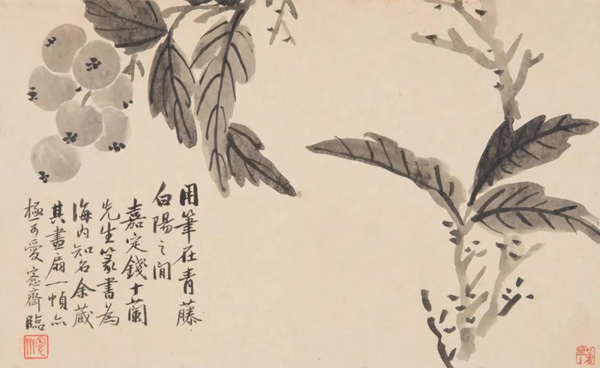 用筆在青藤
白陽之間
嘉定錢十蘭
先生篆書為
海内知名余藏
其畫扇一幀亦
極可愛窓齋臨